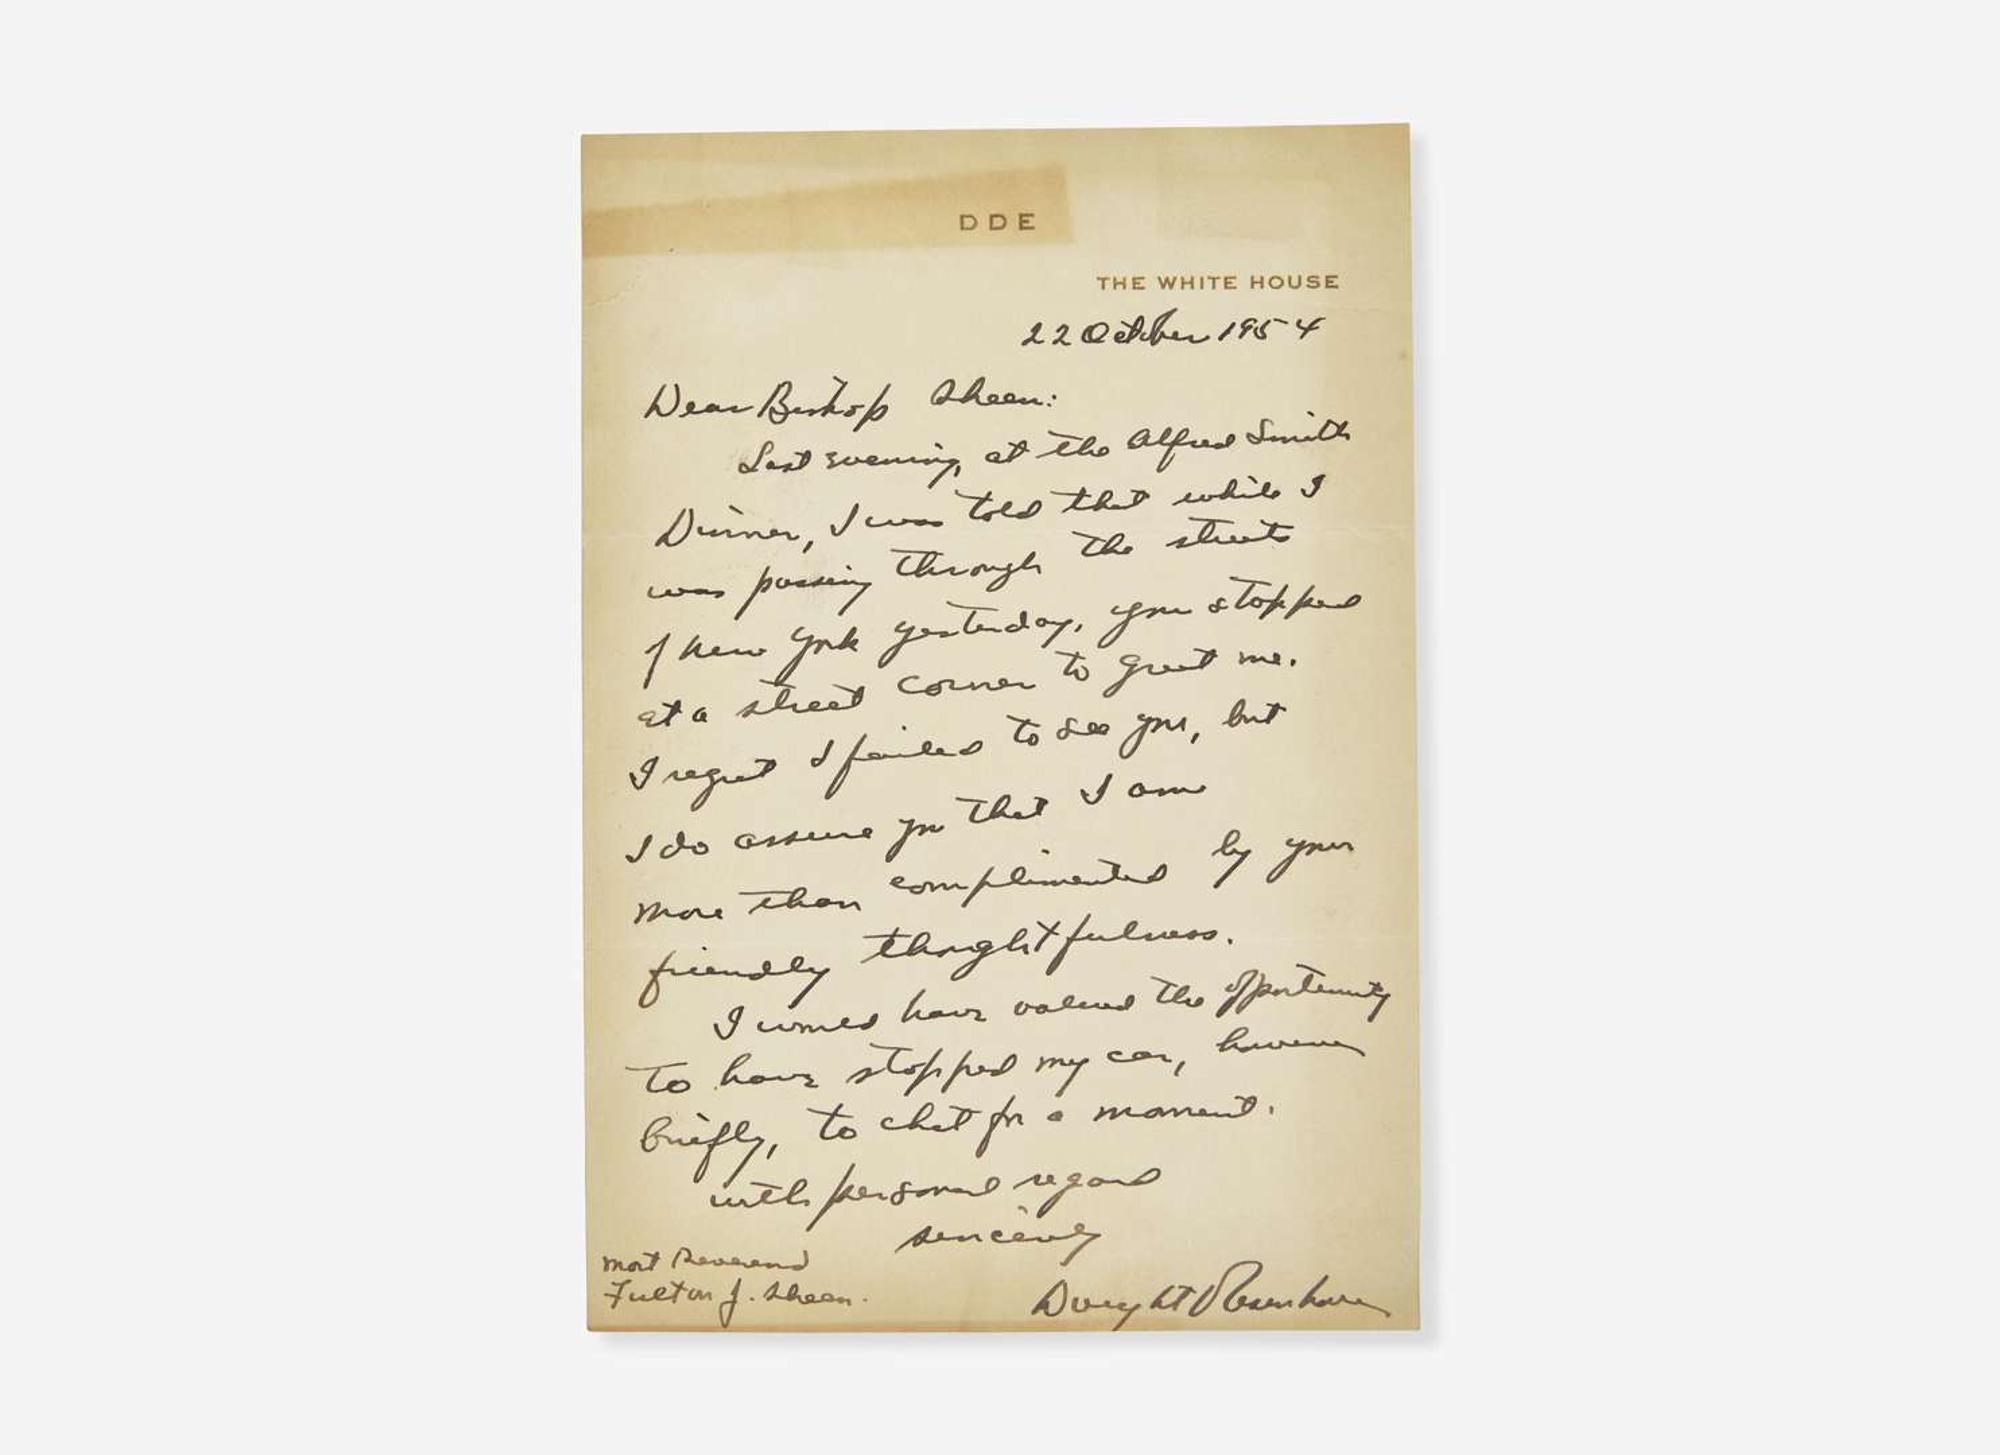 DDE
THE WHITE HOUSE
22 October 1954
Dear Bishop Sheen:
Last evening, at the Alfred Smith
Dinner, I was told that while I
was passing through the streets
of New York yesterday, you stopped
at a street corner to greet me.
I regret I failed to see you, but
I do assure you that I am
more than complimented by your
friendly thoughtfulness.
I would have valued the opportunity
to have stopped my car, however
briefly, to chat for a moment.
with personal regard
sincerely
Dwight D Eisenhower
Most Reverend
Fulton J. Sheen.